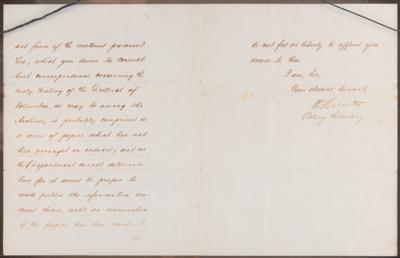 and form of the material preserved
here, which you desire to consult.
That correspondence concerning the
early history of the District of
Columbia, as may be among the
Archives, is probably comprised in
a mass of papers which has not
been arranged or indexed; and as
the Department cannot determine
how far it would be proper to
make public the information con-
tained therein, until an examination
of the papers has been made, I
do
do not feel at liberty to afford you
access to them.
I am, Sir,
Your obedient servant,
Acting Secretary